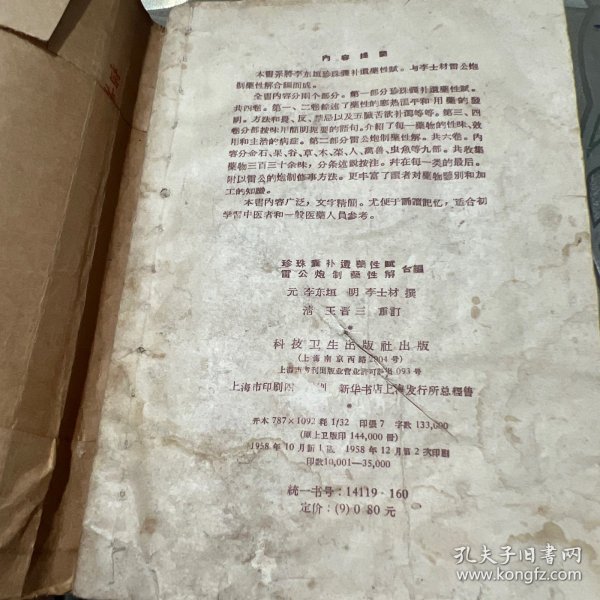 内容提要
本書系將李东垣珍珠囊补遺藥性賦。与李士材雷公炮
制藥性解合編而成。
全書內容分兩个部分。第一部分珍珠囊补遺藥性賦。
共四卷。第一、二卷綜述了藥性的寒热温平和用藥的發
明。方法和畏、反、禁忌以及五臟苦欲补瀉等等。第三、四
卷分部按味用簡明扼要的語句。介紹了每一藥物的性味、效
用和主治的病症。第二部分雷公炮制藥性解。共六卷。內
容分金石、果、谷、草、木、菜、人、禽兽、虫魚等九部。共收集
藥物三百三十余味，分条这叙按注。并在每一类的最后。
附以雷公的炮制修事方法。更丰富了讀者对藥物鑒別和加
工的知識。
本書內容广泛，文字精簡。尤便于誦讀記忆，适合初
学習中医者和一般医藥人員参考。
珍珠囊补遺藥性賦
雷公炮制藥性解 合編
元 李东垣 明 李士材 撰
清 王晋三 重訂
科技卫生出版社出版
(上海南京西路2004号)
上海市書刊出版业营业許可証出093号
上海市印刷 新华書店上海发行所总經售
开本 787×1092 耗 1/32 印張 7 字数 133,000
(原上卫版印 144,000 册)
1958年10月新1版 1958年12月第2次印刷
印数10,001—35,000
統一书号：14119·160
定价：(9) 0.80 元
孔夫子旧书网
www.kongfz.com